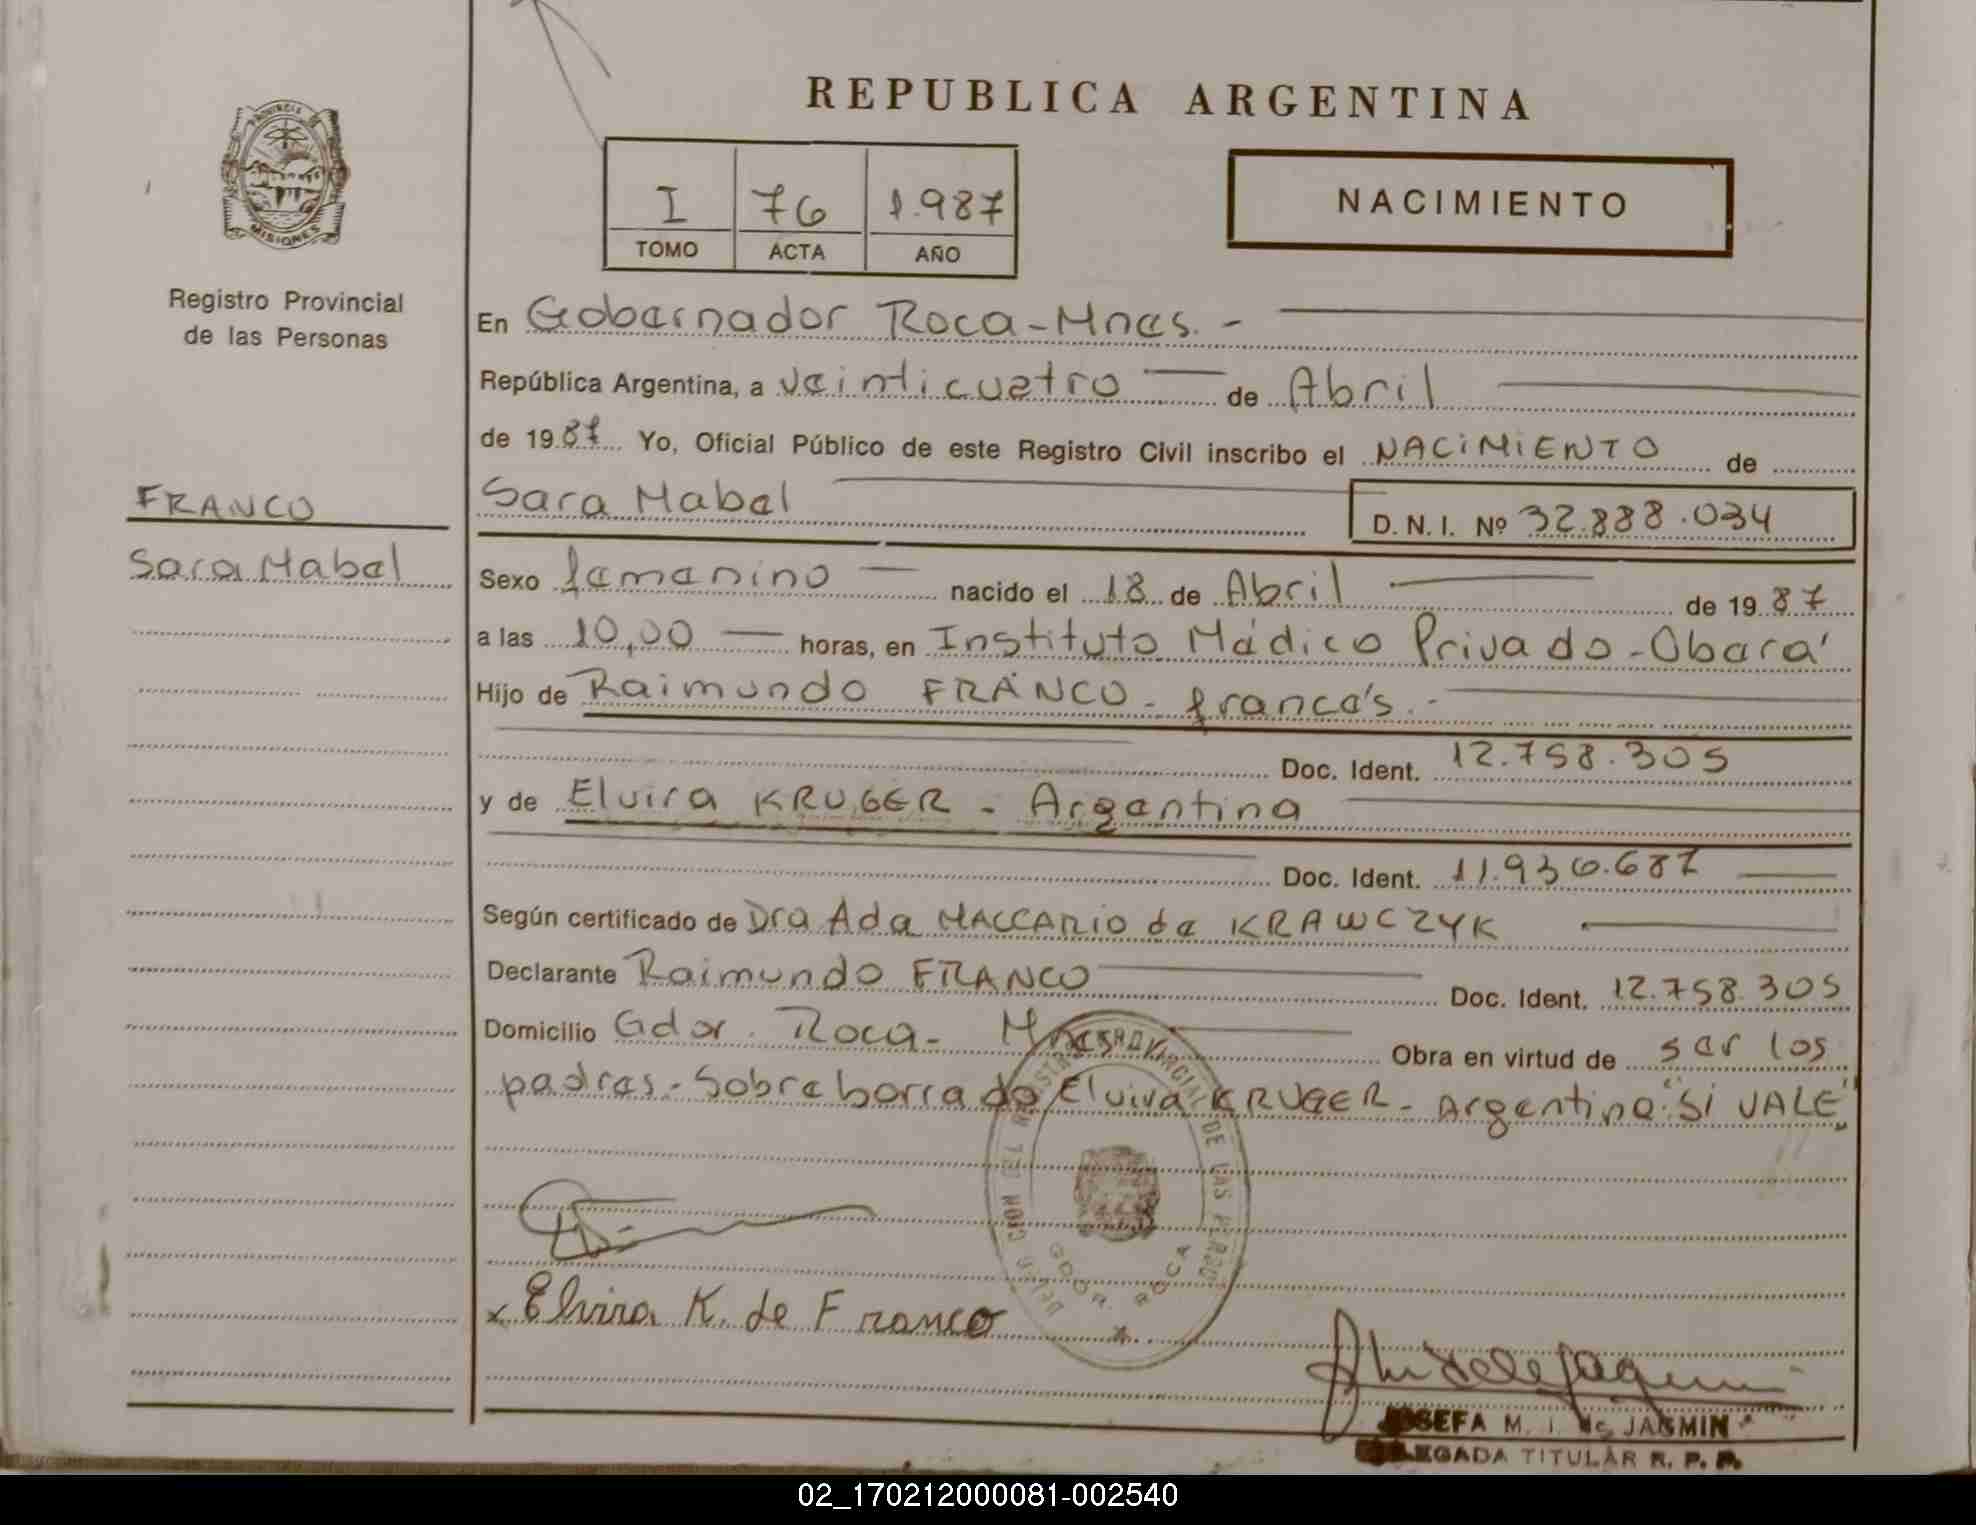 PROVINCIA DE
MISIONES
Registro Provincial
de las Personas
FRANCO
Sara Mabel
REPUBLICA ARGENTINA
I 76 1.987
TOMO ACTA AÑO
NACIMIENTO
En Gobernador Roca-Mnes. -
República Argentina, a veinticuatro de Abril
de 1987 Yo, Oficial Público de este Registro Civil inscribo el NACIMIENTO de
Sara Mabel D. N. I. Nº 32.888.034
Sexo femenino nacido el 18 de Abril de 1987
a las 10,00 horas, en Instituto Médico Privado-Oberá
Hijo de Raimundo FRANCO - francés. -
Doc. Ident. 12.758.305
y de Elvira KRUGER - Argentina
Doc. Ident. 11.936.687
Según certificado de Dra Ada MACCARIO de KRAWCZYK
Declarante Raimundo FRANCO Doc. Ident. 12.758.305
Domicilio Gdor. Roca- Mnes Obra en virtud de ser los
padres.- Sobreborrado Elvira KRUGER - Argentina "SI VALE"
PROVINCIAL DE LAS PERSO
GDOR. ROCA
x Elvira K. de Franco
JOSEFA M. I. de JASMIN
DELEGADA TITULAR R. P. P.
02_170212000081-002540